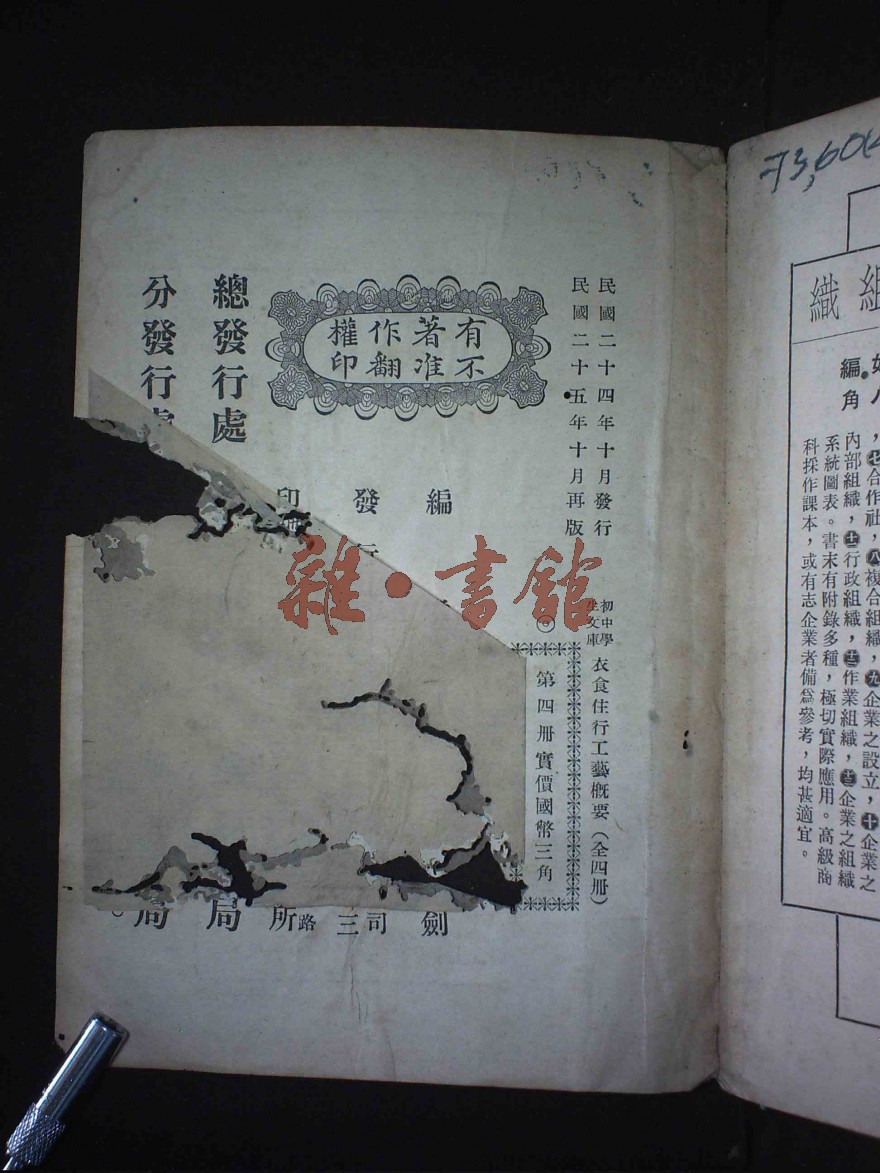 73,60
組織
編角
，㊆合作社，㊇複合組織，㊈企業之設立，㊉企業之
內部組織，⑪行政組織，⑫作業組織，⑬企業之組織
系統圖表。書末有附錄多種，極切實際應用。高級商
科採作課本，或有志企業者備爲參考，均甚適宜。
民國二十四年十月發行
民國二十五年十月再版
初中學
生文庫
衣食住行工藝概要（全四冊）
第四冊實價國幣三角
有著作權
不准翻印
編
劍
發行
司
三路
印
所
總發行處
局
分發行處
局
雜·書館